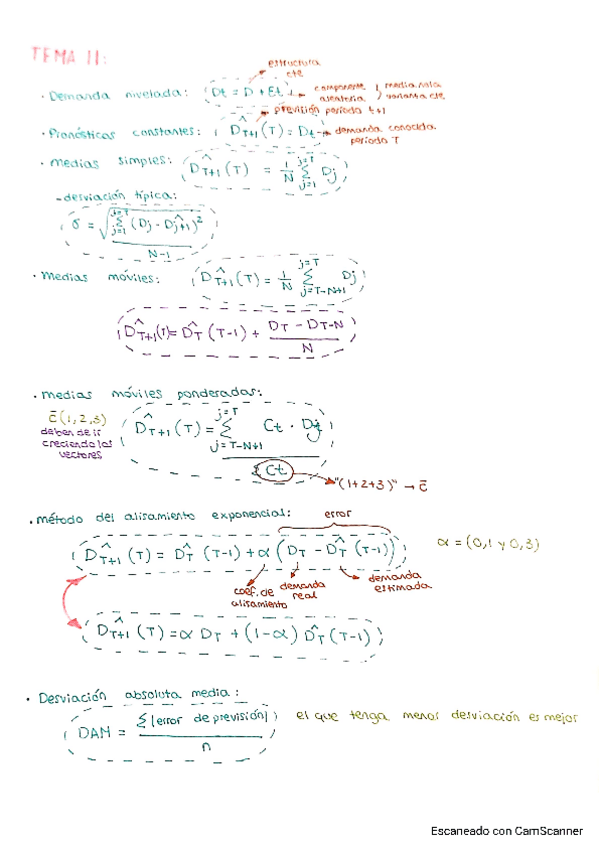 TEMA 11:
estructura
cte
· Demanda nivelada: Dt = D + Et → componente aleatoria } media nula varianza cte
previsión período t+1
· Pronósticos constantes: D̂T+1 (T) = Dt → demanda conocida período T
· medias simples: D̂T+1 (T) = 1/N Σ j=1 j=T Dj
- desviación típica:
σ = √ Σ j=1 j=T (Dj - D̂j+1)² / N-1
· medias móviles: D̂T+1 (T) = 1/N Σ j=T-N+1 j=T Dj
D̂T+1 (T) = D̂T (T-1) + DT - DT-N / N
· medias móviles ponderadas:
c̄ (1,2,3)
deben de ir
creciendo los
vectores
D̂T+1 (T) = Σ j=T-N+1 j=T Ct · Dj / Σ Ct
"(1+2+3)" → c̄
· método del alisamiento exponencial: error
D̂T+1 (T) = D̂T (T-1) + α (DT - D̂T (T-1)) α = (0,1 y 0,3)
coef. de alisamiento
demanda real
demanda estimada
D̂T+1 (T) = α DT + (1-α) D̂T (T-1)
· Desviación absoluta media:
DAM = Σ |error de previsión| / n el que tenga menos desviación es mejor
Escaneado con CamScanner